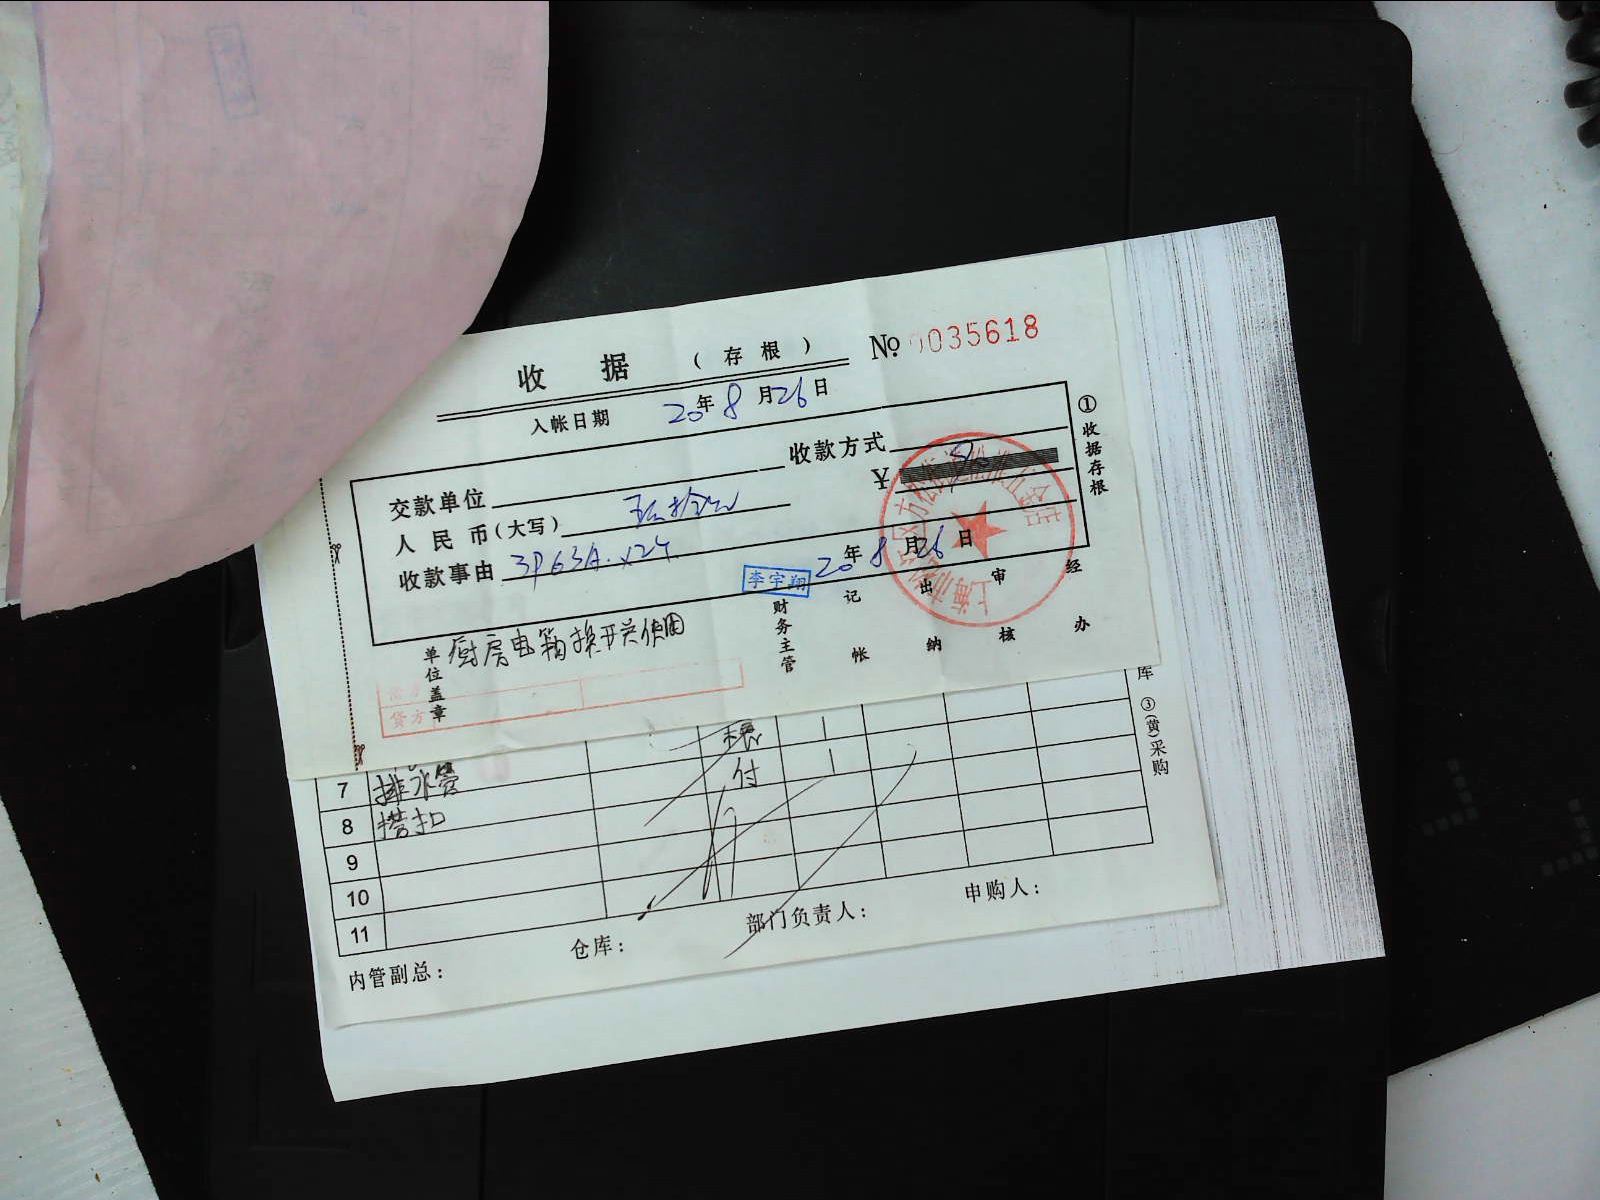 收 据 （存 根） № 0035618
入帐日期 20年8月26日
交款单位 收款方式
人 民 币(大写) 伍拾元 ¥ 50
收款事由 3P63A.x2个
20年8月26日
李宇翔
财务主管 记帐 出纳 审核 经办
单位盖章
厨房电箱换开关使用
贷方
①收据存根
库 ③(黄)采购
7 排水管
8 搭扣
付
9
10
11
内管副总： 仓库： 部门负责人： 申购人：